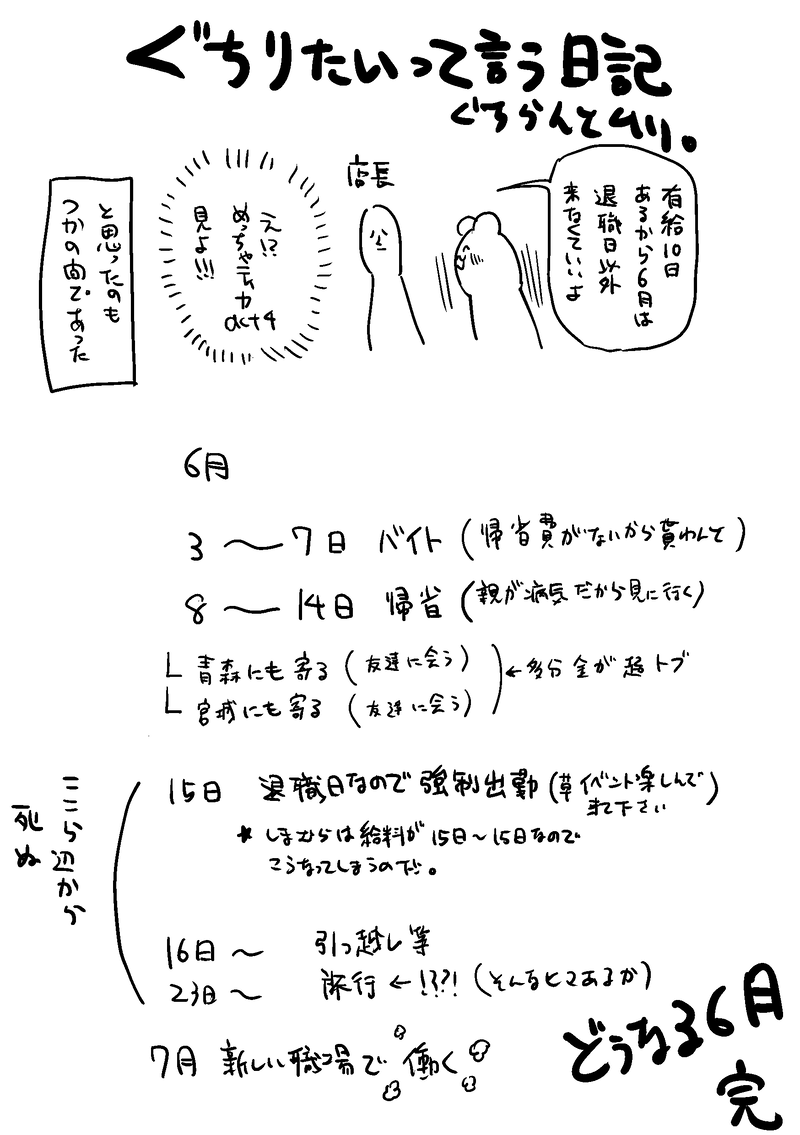 ぐちりたいって言う日記
ぐちらんとムリ。
有給10日
あるから6月は
退職日以外
来なくていいよ
店長
え!?
めっちゃティカ
act4
見よ!!!
と思ったのも
つかの間であった
6月
3〜7日 バイト(帰省費がないから貰わんと)
8〜14日 帰省(親が病気だから見に行く)
└ 青森にも寄る(友達に会う)
└ 宮城にも寄る(友達に会う)
←多分金が超トブ
15日 退職日なので強制出勤(草イベント楽しんで
来て下さい)
★しまむらは給料が15日〜15日なので
こうなってしまうのだ。
ここら辺から
死ぬ
16日〜 引っ越し等
23日〜 旅行←!?!(そんなヒマあるか)
7月 新しい職場で働く
どうなる6月
完